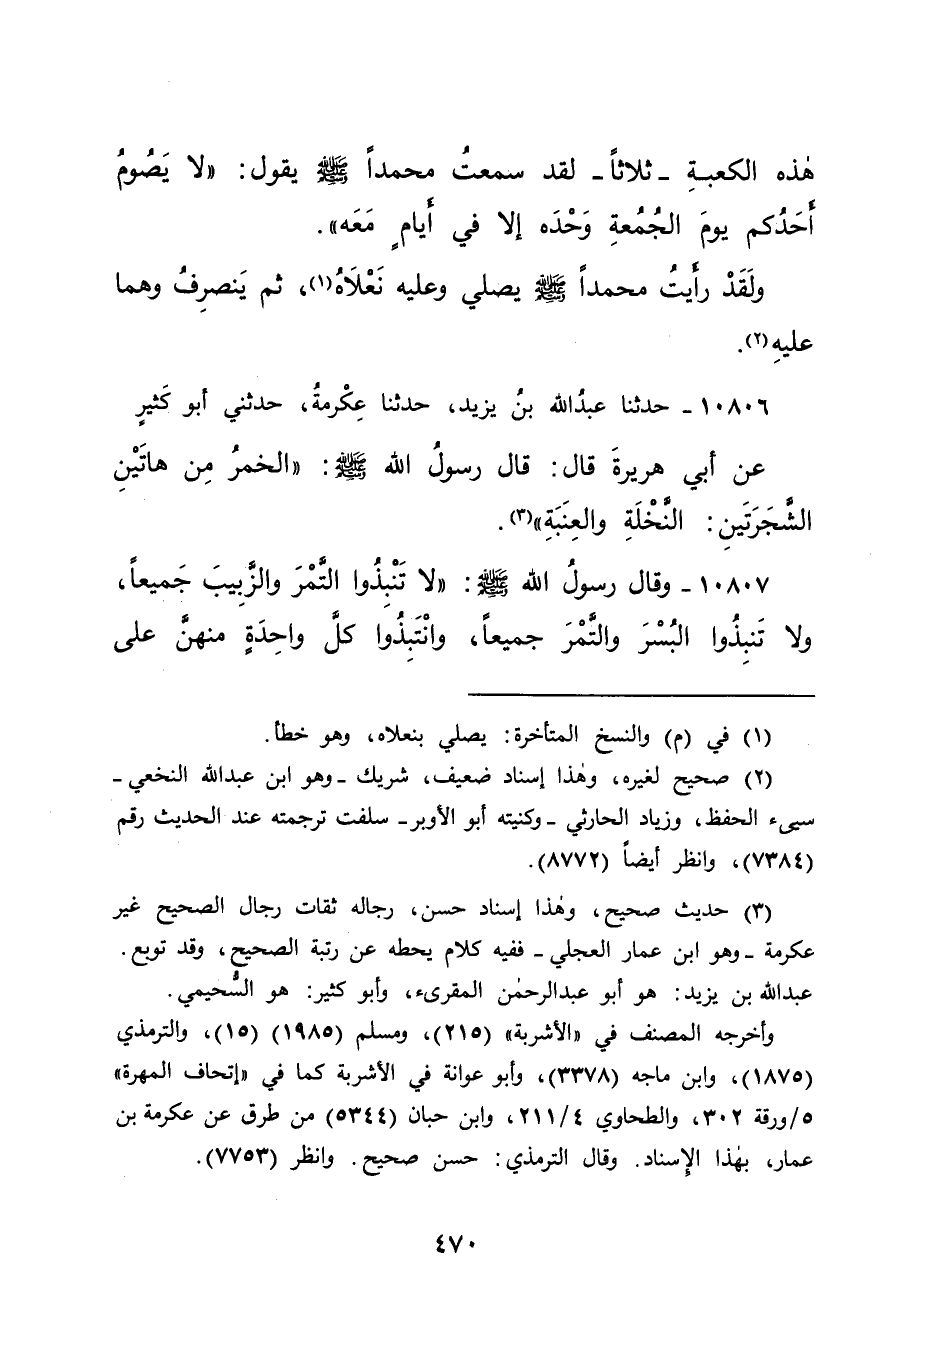 هٰذه الكعبـةِ ـ ثلاثاً ـ لقد سمعتُ محمداً ﷺ يقول: «لا يَصُومُ
أَحَدُكم يومَ الجُمُعةِ وَحْدَه إلا في أَيامٍ مَعَه».
ولَقَدْ رأَيتُ محمداً ﷺ يصلي وعليه نَعْلَاهُ(١)، ثم يَنصرِفُ وهما
عليهِ(٢).
١٠٨٠٦ ـ حدثنا عبدُالله بنُ يزيد، حدثنا عِكْرمةُ، حدثني أبو كَثيرٍ
عن أبي هريرةَ قال: قال رسولُ الله ﷺ: «الخمرُ مِن هاتَيْنِ
الشَّجَرَتَينِ: النَّخْلَةِ والعِنَبَةِ»(٣).
١٠٨٠٧ ـ وقال رسولُ الله ﷺ: «لا تَنْبِذُوا التَّمْرَ والزَّبِيبَ جَميعاً،
ولا تَنبِذُوا البُسْرَ والتَّمْرَ جميعاً، وانْتَبِذُوا كلَّ واحِدَةٍ منهنَّ على
(١) في (م) والنسخ المتأخرة: يصلي بنعلاه، وهو خطأ.
(٢) صحيح لغيره، وهٰذا إسناد ضعيف، شريك ـ وهو ابن عبدالله النخعي ـ
سيىء الحفظ، وزياد الحارثي ـ وكنيته أبو الأوبر ـ سلفت ترجمته عند الحديث رقم
(٧٣٨٤)، وانظر أيضاً (٨٧٧٢).
(٣) حديث صحيح، وهٰذا إسناد حسن، رجاله ثقات رجال الصحيح غير
عكرمة ـ وهو ابن عمار العجلي ـ ففيه كلام يحطه عن رتبة الصحيح، وقد توبع.
عبدالله بن يزيد: هو أبو عبدالرحمٰن المقرىء، وأبو كثير: هو السُّحيمي.
وأخرجه المصنف في «الأشربة» (٢١٥)، ومسلم (١٩٨٥) (١٥)، والترمذي
(١٨٧٥)، وابن ماجه (٣٣٧٨)، وأبو عوانة في الأشربة كما في «إتحاف المهرة»
٥/ورقة ٣٠٢، والطحاوي ٢١١/٤، وابن حبان (٥٣٤٤) من طرق عن عكرمة بن
عمار، بهٰذا الإسناد. وقال الترمذي: حسن صحيح. وانظر (٧٧٥٣).
٤٧٠